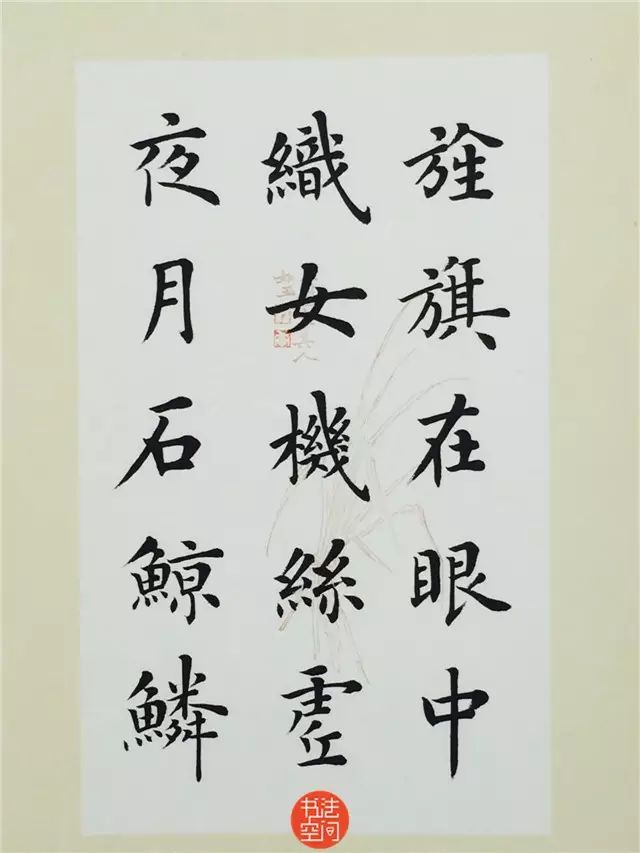 旌旗在眼中
織女機絲虛
夜月石鯨鱗
书法
空间